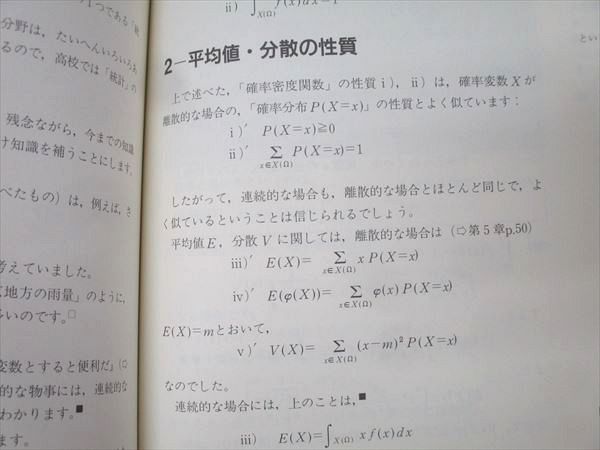 1つである「統
分野は，たいへんいろいろあ
るので，高校では「統計」の
残念ながら，今までの知識
け知識を補うことにします
べたもの）は，例えば，さ
考えていました。
地方の雨量」のように，
多いのです。□
変数とすると便利だ」(⇨
的な物事には，連続的な
わかります。■
ます。
ii) ∫_{X(Ω)} f(x)dx=1
2−平均値・分散の性質
上で述べた，「確率密度関数」の性質 i），ii）は，確率変数 X が
離散的な場合の，「確率分布 P(X=x)」の性質とよく似ています：
i)′ P(X=x)≧0
ii)′ Σ_{x∈X(Ω)} P(X=x)=1
したがって，連続的な場合も，離散的な場合とほとんど同じで，よ
く似ているということは信じられるでしょう。
平均値 E，分散 V に関しては，離散的な場合は（⇨第5章p.50）
iii)′ E(X)= Σ_{x∈X(Ω)} x P(X=x)
iv)′ E(φ(X))= Σ_{x∈X(Ω)} φ(x) P(X=x)
E(X)=m とおいて，
v)′ V(X)= Σ_{x∈X(Ω)} (x−m)² P(X=x)
なのでした。
連続的な場合には，上のことは，■
iii) E(X)=∫_{X(Ω)} x f(x) dx
とい